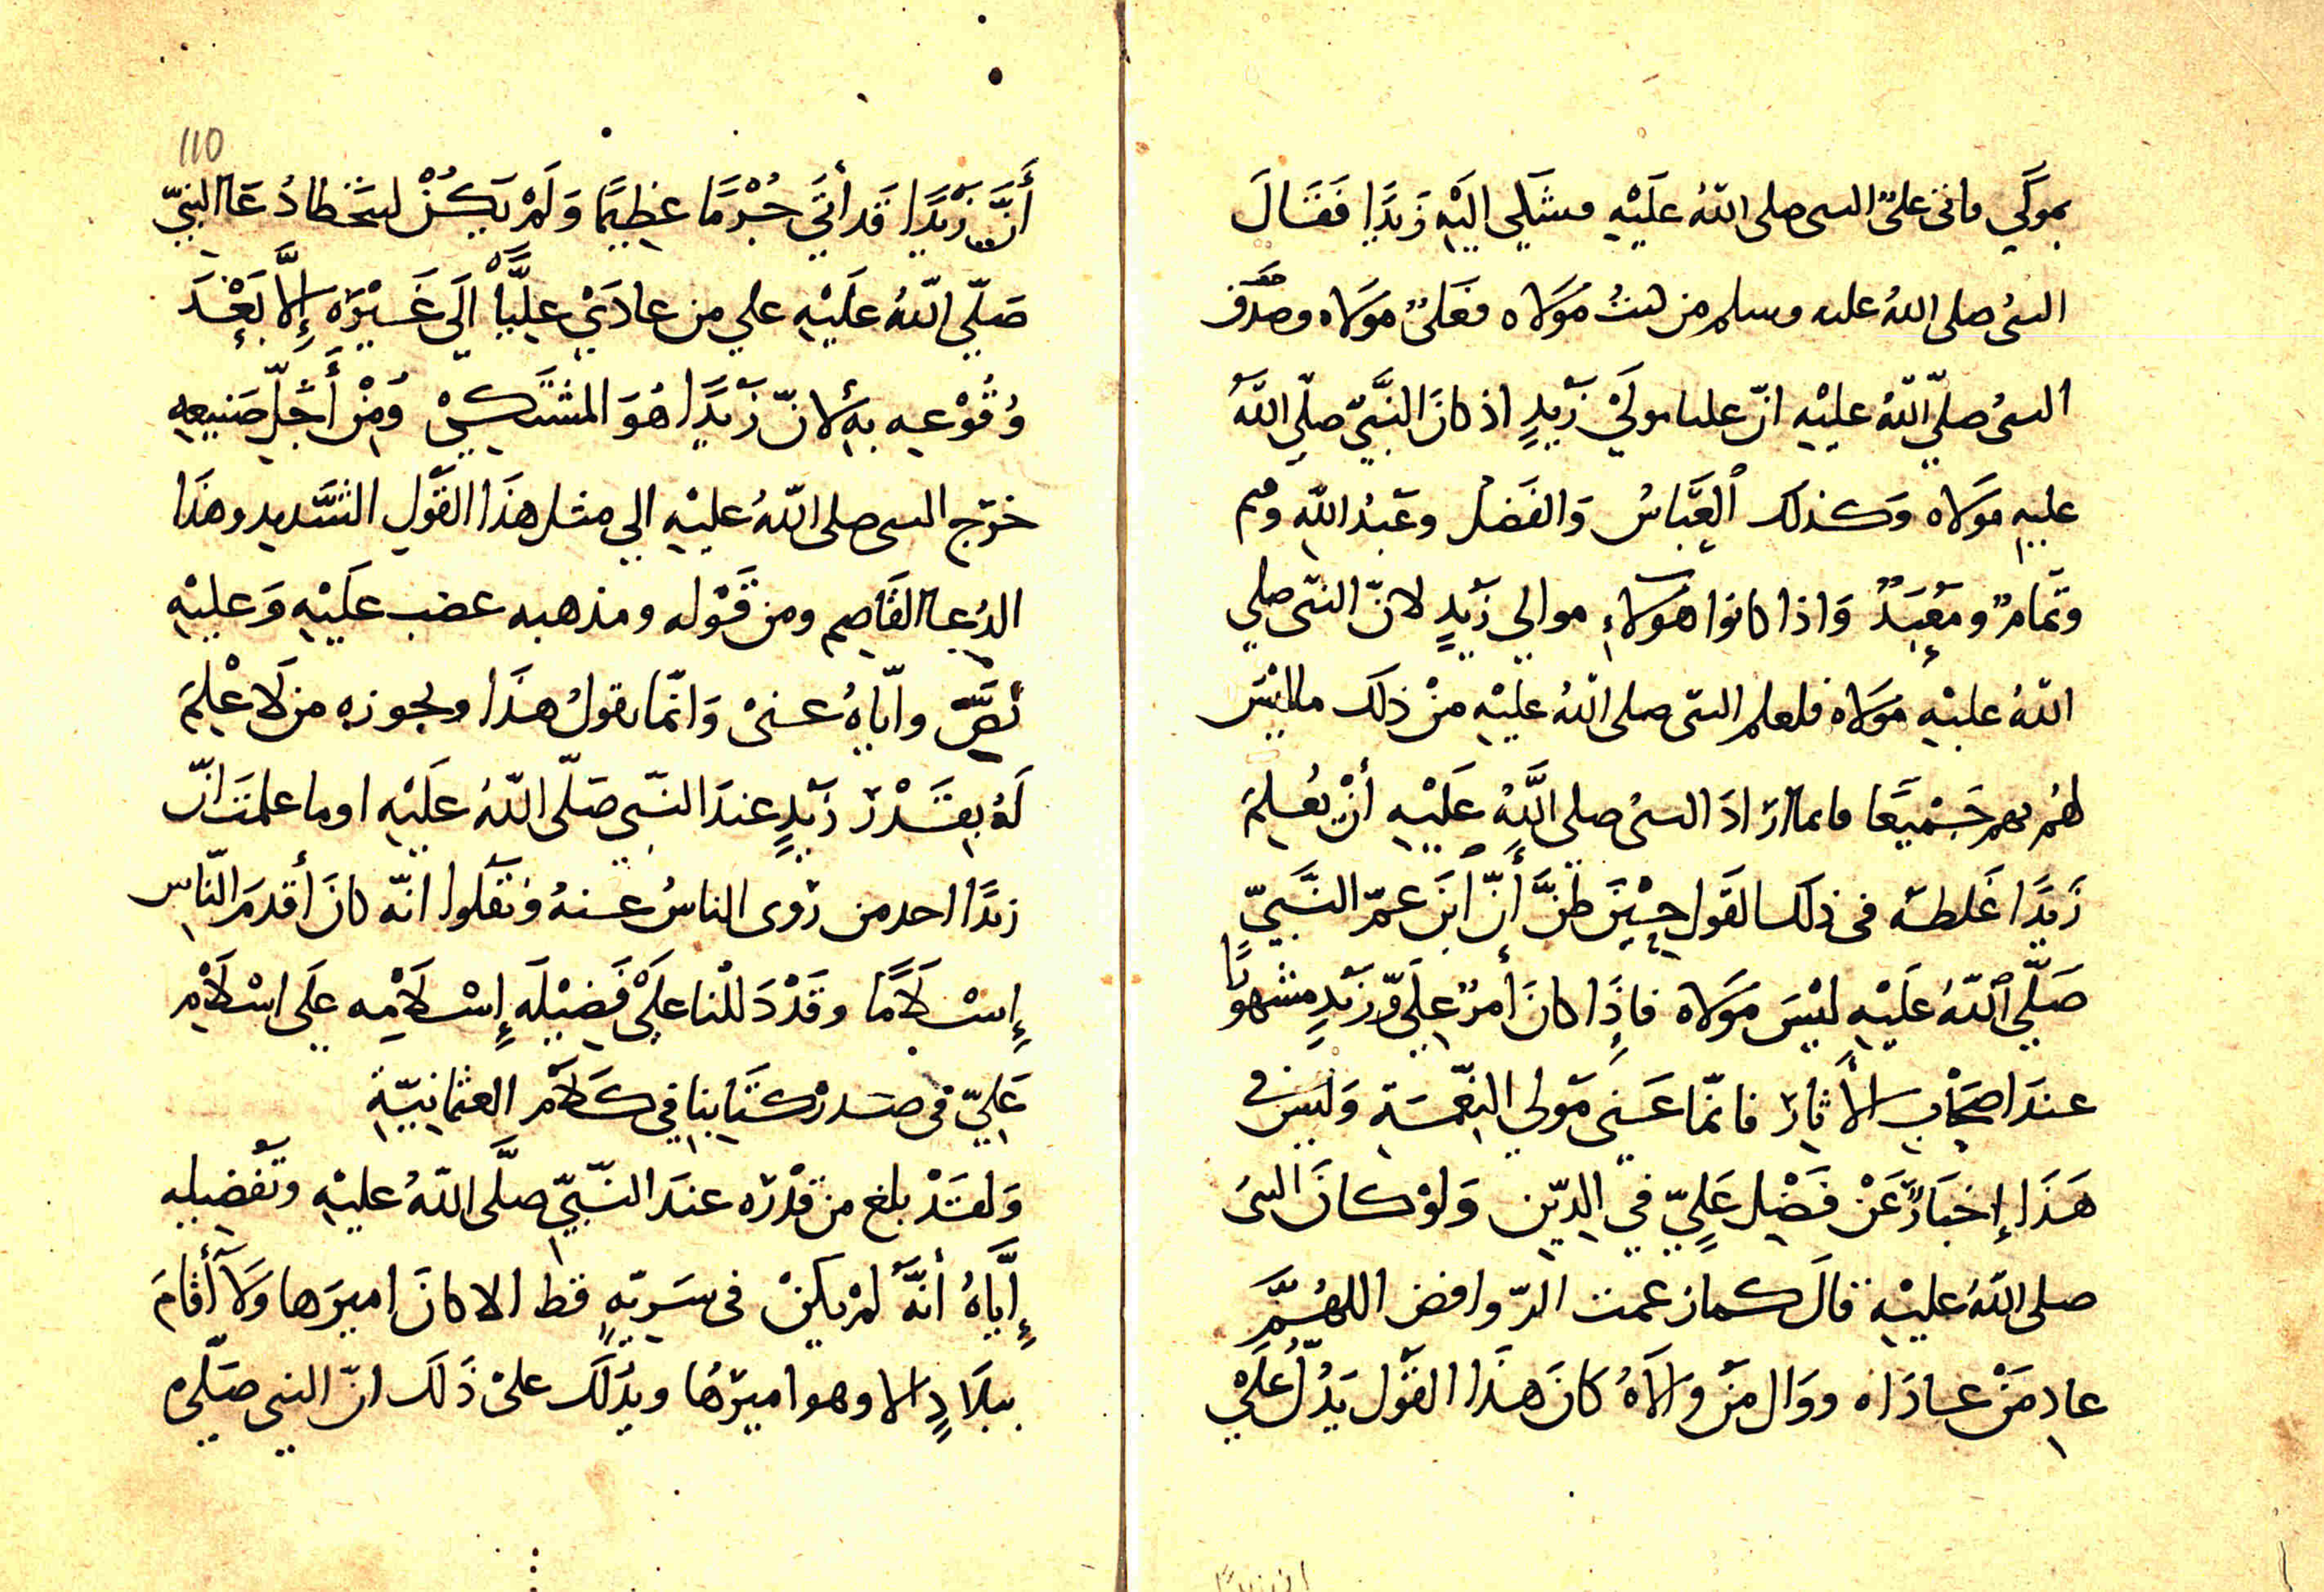 بمولَي فاتى عليٌّ النبى صلى اللهُ عَلَيْهِ فشَكَى الَيْهِ زَيدًا فَقَالَ
النبىُ صلى اللهُ عليه وسلم من كنتُ مَولاه فعَلىٌ مَولاه وصَدَق
النبىُ صلّي اللهُ عليْهِ انّ عليا مولَي زَيدٍ اذ كانَ النَّبيّ صلّي اللهُ
عليهِ مَولاه وَكذلك العَبّاسُ وَالفَضل وعَبدُ اللهِ وقثم
وتَمامٌ ومَعْبَدٌ وَاذا كانوا هَولاءِ موالي زَيدٍ لانّ النبّى صلي
اللهُ عليْهِ مَولاه فلعلم النبّى صلى اللهُ عليْهِ منْ ذلك ما ليْسَ
لهُم بهم جَميْعًا فانما ارَادَ النبىُ صلى اللَّهُ عَلَيْهِ أنْ يُعلِمَ
زَيدًا غَلطه فى ذلكَ القَول حِيْنَ ظَنَّ أَنّ ابنَ عمّ النَّبيّ
صَلَّي اللهُ عَلَيْهِ ليْسَ مَولاه فاذَا كانَ أمرُ عليّ وزَيدٍ مشهورًا
عندَ اصحَابِ الأثارِ فانمّا عَنى مَولي النِّعمَة وَليسَ فى
هَذَا إخبَارٌ عَنْ فَضْل عَليّ في الدّينِ وَلوْ كانَ النبىُ
صلى اللهُ عليْهِ قالَ كما زعمت الرّوافض اللهُمَّ
عادِ مَنْ عادَاه ووَال مَنْ والاهُ كانَ هذَا القَول يَدُلّ عَلَي
ان زيدًا
110
أَنَّ زَيْدًا قَد أتَي جُرْمًا عظِيمًا وَلَمْ يَكُنْ ليتخطا دُعَا النبيّ
صَلّي اللهُ عَلَيْهِ علي من عادَي عليًّا الَي غَيْرِه إلَّا بَعْدَ
وُقُوْعِه بهِ لانّ زَيدًا هُوَ المشتَكِيْ وَمِنْ أَجَلّ صَنيعهِ
خرّج النبى صلى اللهُ عليْهِ الي مثل هذَا القَولِ الشَّديد وهذَا
الدُعا القَاصِم ومن قَوْله ومذهبه غضب عَلَيْهِ وَعليْهِ
نَصَّ وايّاهُ عنىْ وَانمّا يقولُ هذَا ويجوزه من لَا عْلمَ
لَهُ بقَدْر زَيدٍ عندَ النبّي صَلّى اللهُ عَلَيْهِ اوما علمتَ انّ
زيدًا احد من رَوى الناسُ عنهُ ونَقَلوا انّه كانَ أقدمَ النّاسِ
إسْلَامًا وقَدْ دَللْنا علَيْ فَضيْلَه إسْلَامِه علَى اسْلَام
عَليّ فى صدرْ كتَابنا في كَلام العثمانِيّةِ
وَلقَدْ بلغ من قَدْرِه عندَ النّبيّ صلَّى اللهُ عليْهِ وتَفْضيلِه
إيَّاهُ أنّهُ لمْ يكنْ فى سَريّةٍ قط الا كانَ اميرَها وَلَا أقامَ
ببلَادٍ الا وهو اميرُها ويدُلكَ علىْ ذَلكَ انّ النبى صَلّى